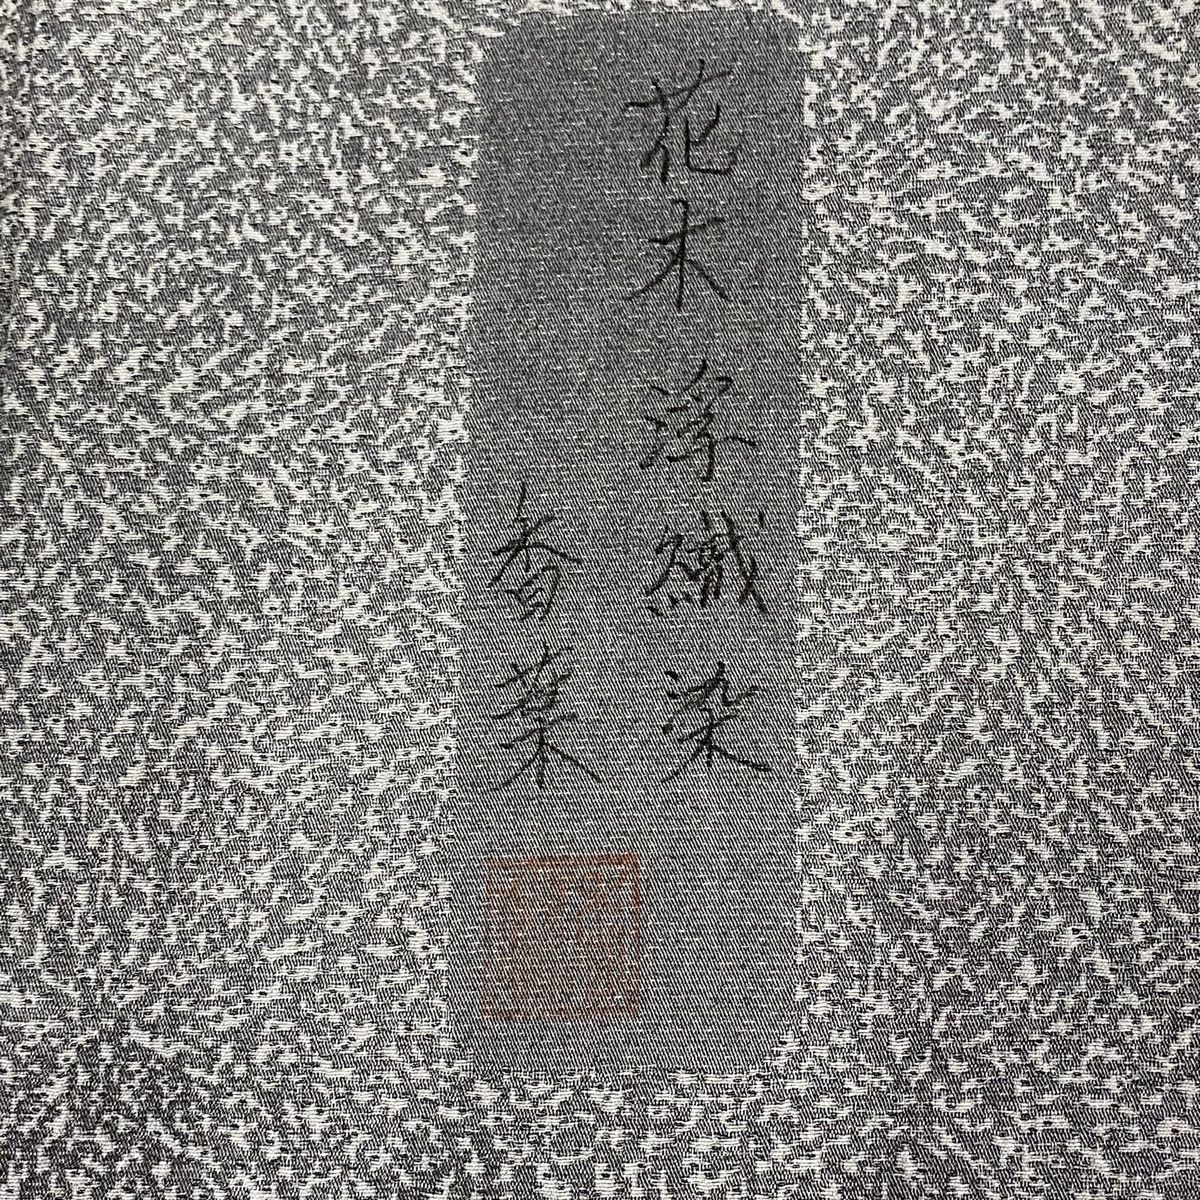 花木浮織染
香葉